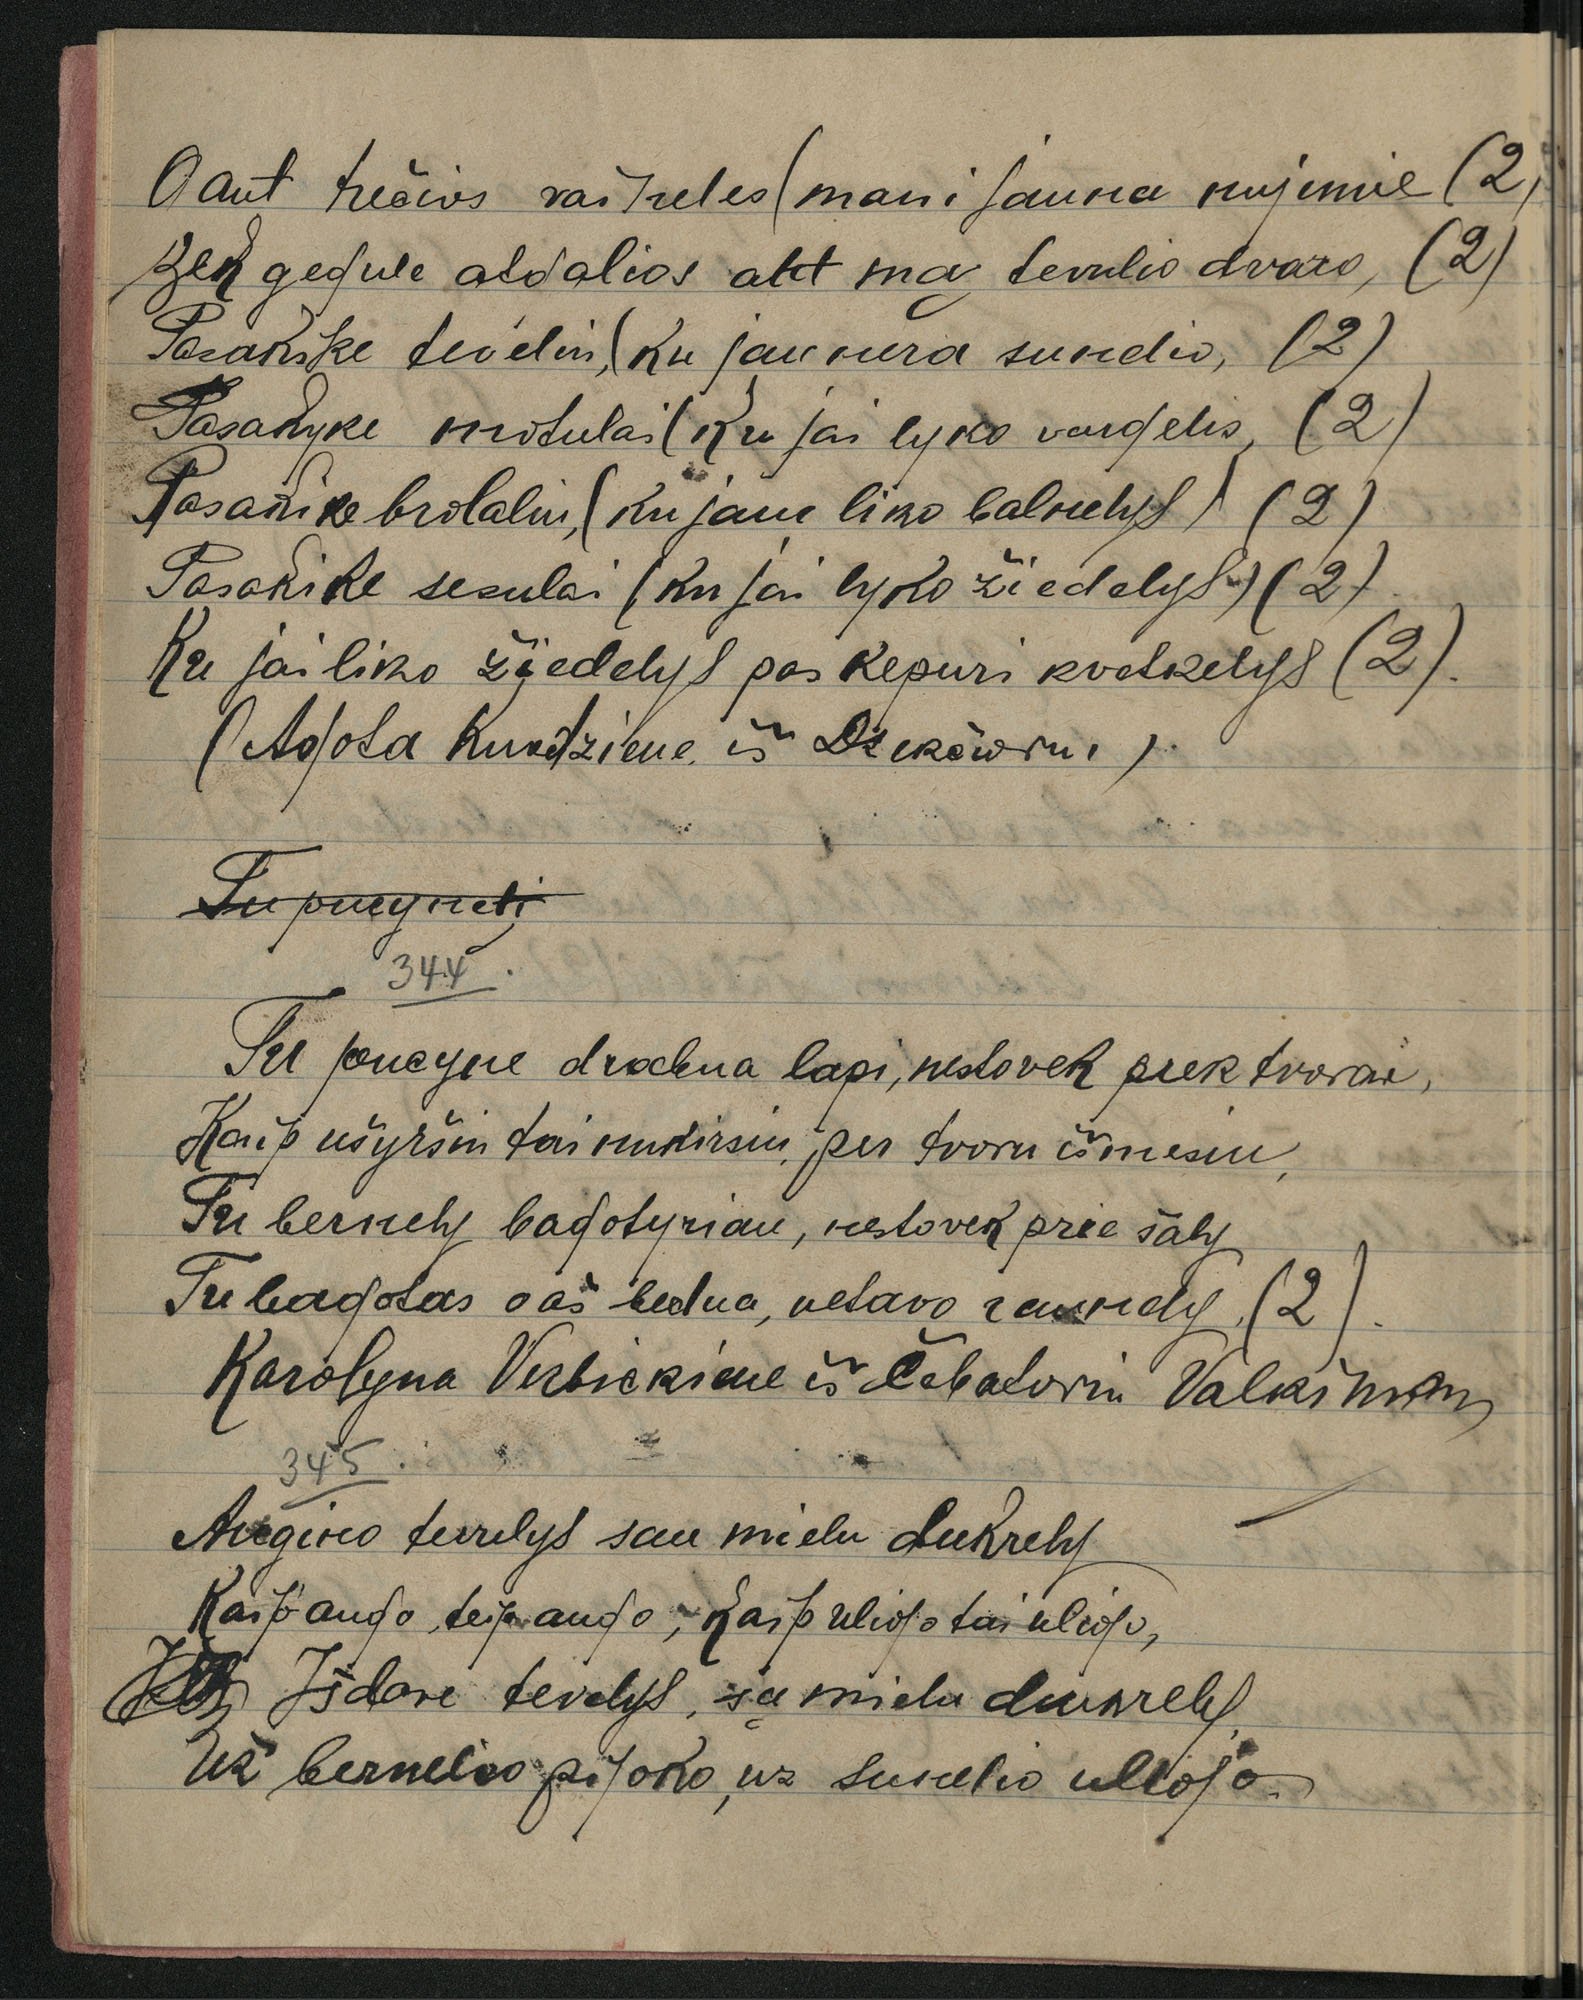 O ant trečios vaiskeles (mani jauna nujemie (2)
Zek gegule atdalios ant ma tevulio dvaro, (2)
Pasakike teveliu, (ku jau nera sunelio, (2)
Pasakyke motulai (ku jai lyko vargelis, (2)
Pasakike brolaliu, (ku jam liko balnelys) (2)
Pasakike sesulai (ku jai lyko žiedelys) (2)
Ku jai liko žiedelys pas kepuri kvetkelys (2).
(Agota Kundziene iš
344.
Tu pucyne drobna lapi, nestovek prek tvorai,
Kaip ušyršin tai nukirsiu, per tvoru išmesiu,
Tu bernely bagotyriau, nestovek prie šaly
Tu bagotas o aš bedna, netavo raundy, (2).
Karolyna Verbickiene iš Čebatoriu
345.
Augino tevelys sau mielu dukrely
Kaip augo, teip augo, kaip uliojo tai uliojo,
Išdave tevelys, sa mielu dukrely
Už bernelio pijoko, uz sunelio uliojo.